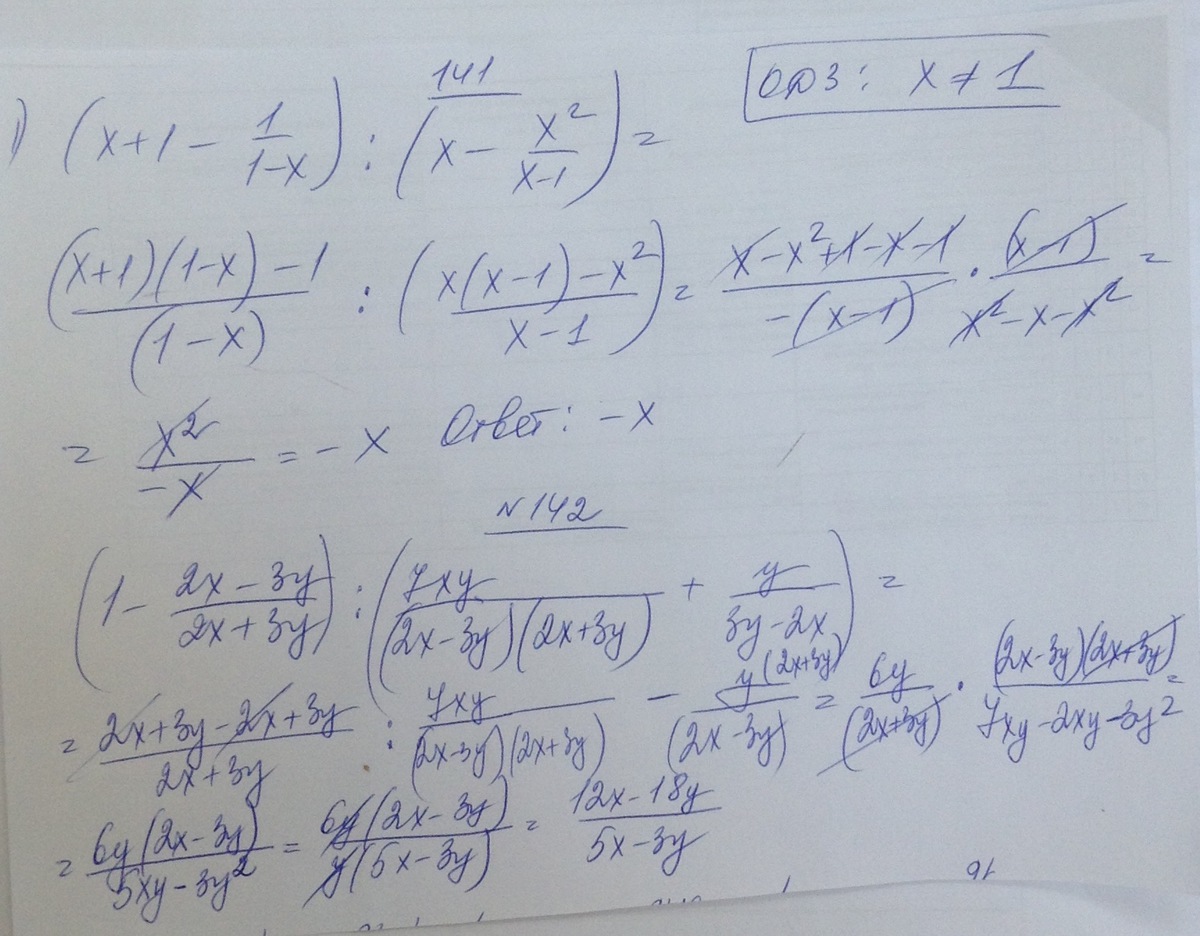 141
ОДЗ: x ≠ 1
1) (x+1 - 1/(1-x)) : (x - x²/(x-1)) =
((x+1)(1-x)-1)/(1-x) : (x(x-1)-x²)/(x-1) = (x-x²+1-x-1)/(-(x-1)) · (x-1)/(x²-x-x²) =
= x²/(-x) = -x Ответ: -x
N142
(1 - (2x-3y)/(2x+3y)) : (7xy/((2x-3y)(2x+3y)) + y/(3y-2x)) =
= (2x+3y-2x+3y)/(2x+3y) : 7xy/((2x-3y)(2x+3y)) - y(2x+3y)/(2x-3y) = 6y/(2x+3y) · (2x-3y)(2x+3y)/(7xy-2xy-3y²) =
= 6y(2x-3y)/(5xy-3y²) = 6y(2x-3y)/(y(5x-3y)) = (12x-18y)/(5x-3y)